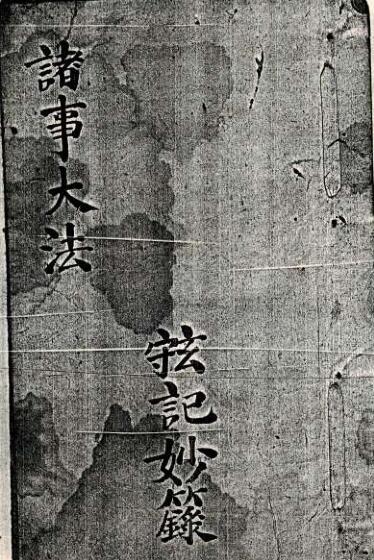 記妙籙
諸事大法